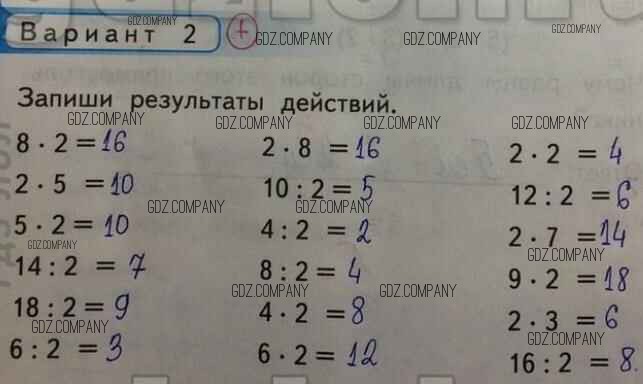 Вариант 2
GDZ.COMPANY GDZ.COMPANY GDZ.COMPANY GDZ.COMPANY
Запиши результаты действий.
GDZ.COMPANY GDZ.COMPANY GDZ.COMPANY GDZ.COMPANY
8 · 2 = 16 2 · 8 = 16 2 · 2 = 4
2 · 5 = 10 10 : 2 = 5 12 : 2 = 6
GDZ.COMPANY GDZ.COMPANY
5 · 2 = 10 4 : 2 = 2 2 · 7 = 14
GDZ.COMPANY GDZ.COMPANY
14 : 2 = 7 8 : 2 = 4 9 · 2 = 18
GDZ.COMPANY GDZ.COMPANY
18 : 2 = 9 4 · 2 = 8 2 · 3 = 6
GDZ.COMPANY GDZ.COMPANY
6 : 2 = 3 6 · 2 = 12 16 : 2 = 8.